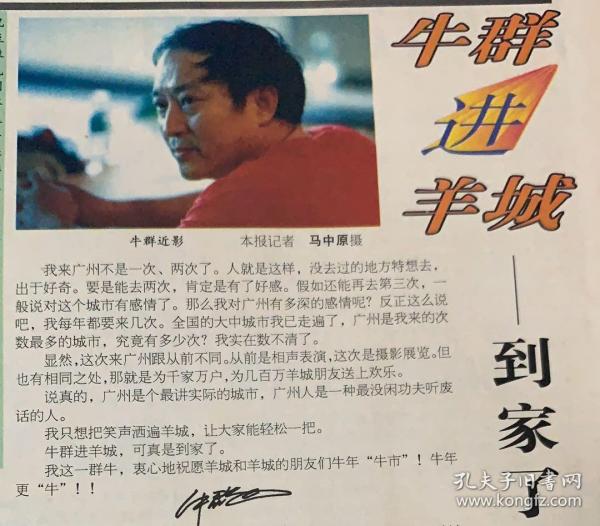 牛群
进
羊城
——到家了
牛群近影 本报记者 马中原摄
我来广州不是一次、两次了。人就是这样，没去过的地方特想去，
出于好奇。要是能去两次，肯定是有了好感。假如还能再去第三次，一
般说对这个城市有感情了。那么我对广州有多深的感情呢？反正这么说
吧，我每年都要来几次。全国的大中城市我已走遍了，广州是我来的次
数最多的城市，究竟有多少次？我实在数不清了。
显然，这次来广州跟从前不同。从前是相声表演，这次是摄影展览。但
也有相同之处，那就是为千家万户，为几百万羊城朋友送上欢乐。
说真的，广州是个最讲实际的城市，广州人是一种最没闲功夫听废
话的人。
我只想把笑声洒遍羊城，让大家能轻松一把。
牛群进羊城，可真是到家了。
我这一群牛，衷心地祝愿羊城和羊城的朋友们牛年“牛市”！牛年
更“牛”！！
牛群
孔夫子旧书网
www.kongfz.com